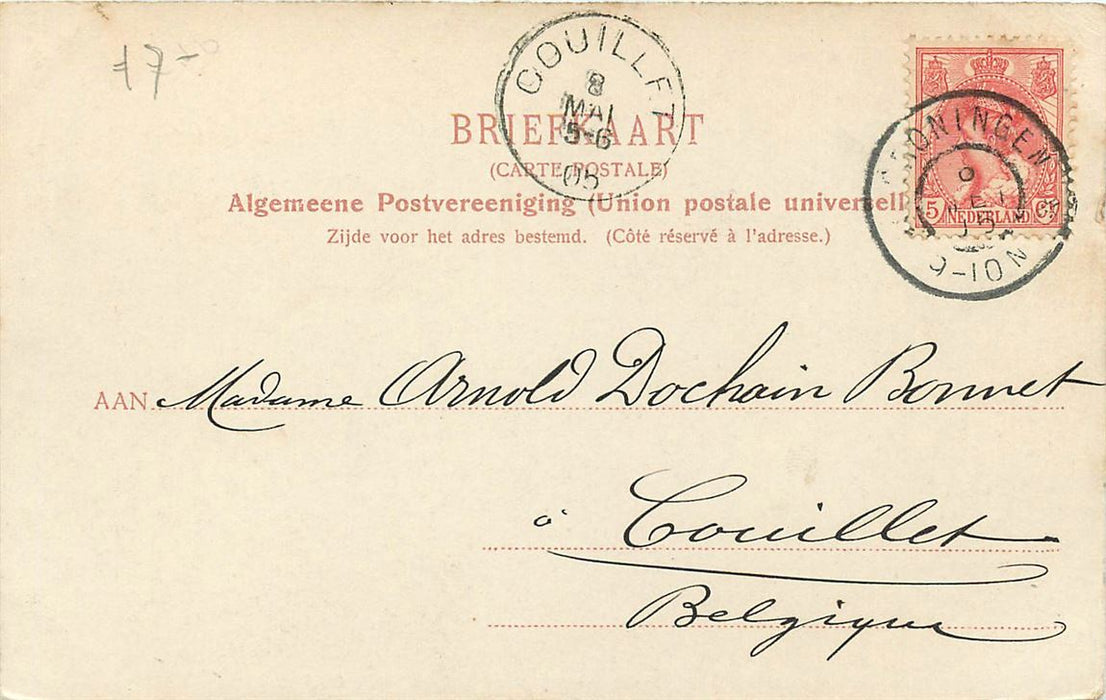 17-
COUILLET
8
MAI
5-6
05
BRIEFKAART
(CARTE POSTALE)
Algemeene Postvereeniging (Union postale universell
Zijde voor het adres bestemd. (Côté réservé à l'adresse.)
GRONINGEN
9-10N
5 NEDERLAND Ct
AAN Madame Arnold Dochain Bonnet
à Couillet
Belgique